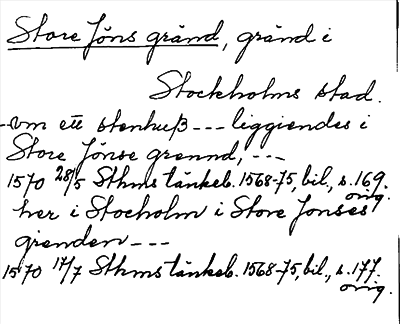 Store Jöns gränd, gränd i
Stockholms stad.
- om ett stenhuß --- liggiendes i
Store Jönse grennd, ---
1570 28/5 Sthms tänkeb. 1568-75, bil., s. 169.
orig.
her i Stocholm i Store Jonses
grenden ---
1570 17/7 Sthms tänkeb. 1568-75, bil., s. 177.
orig.